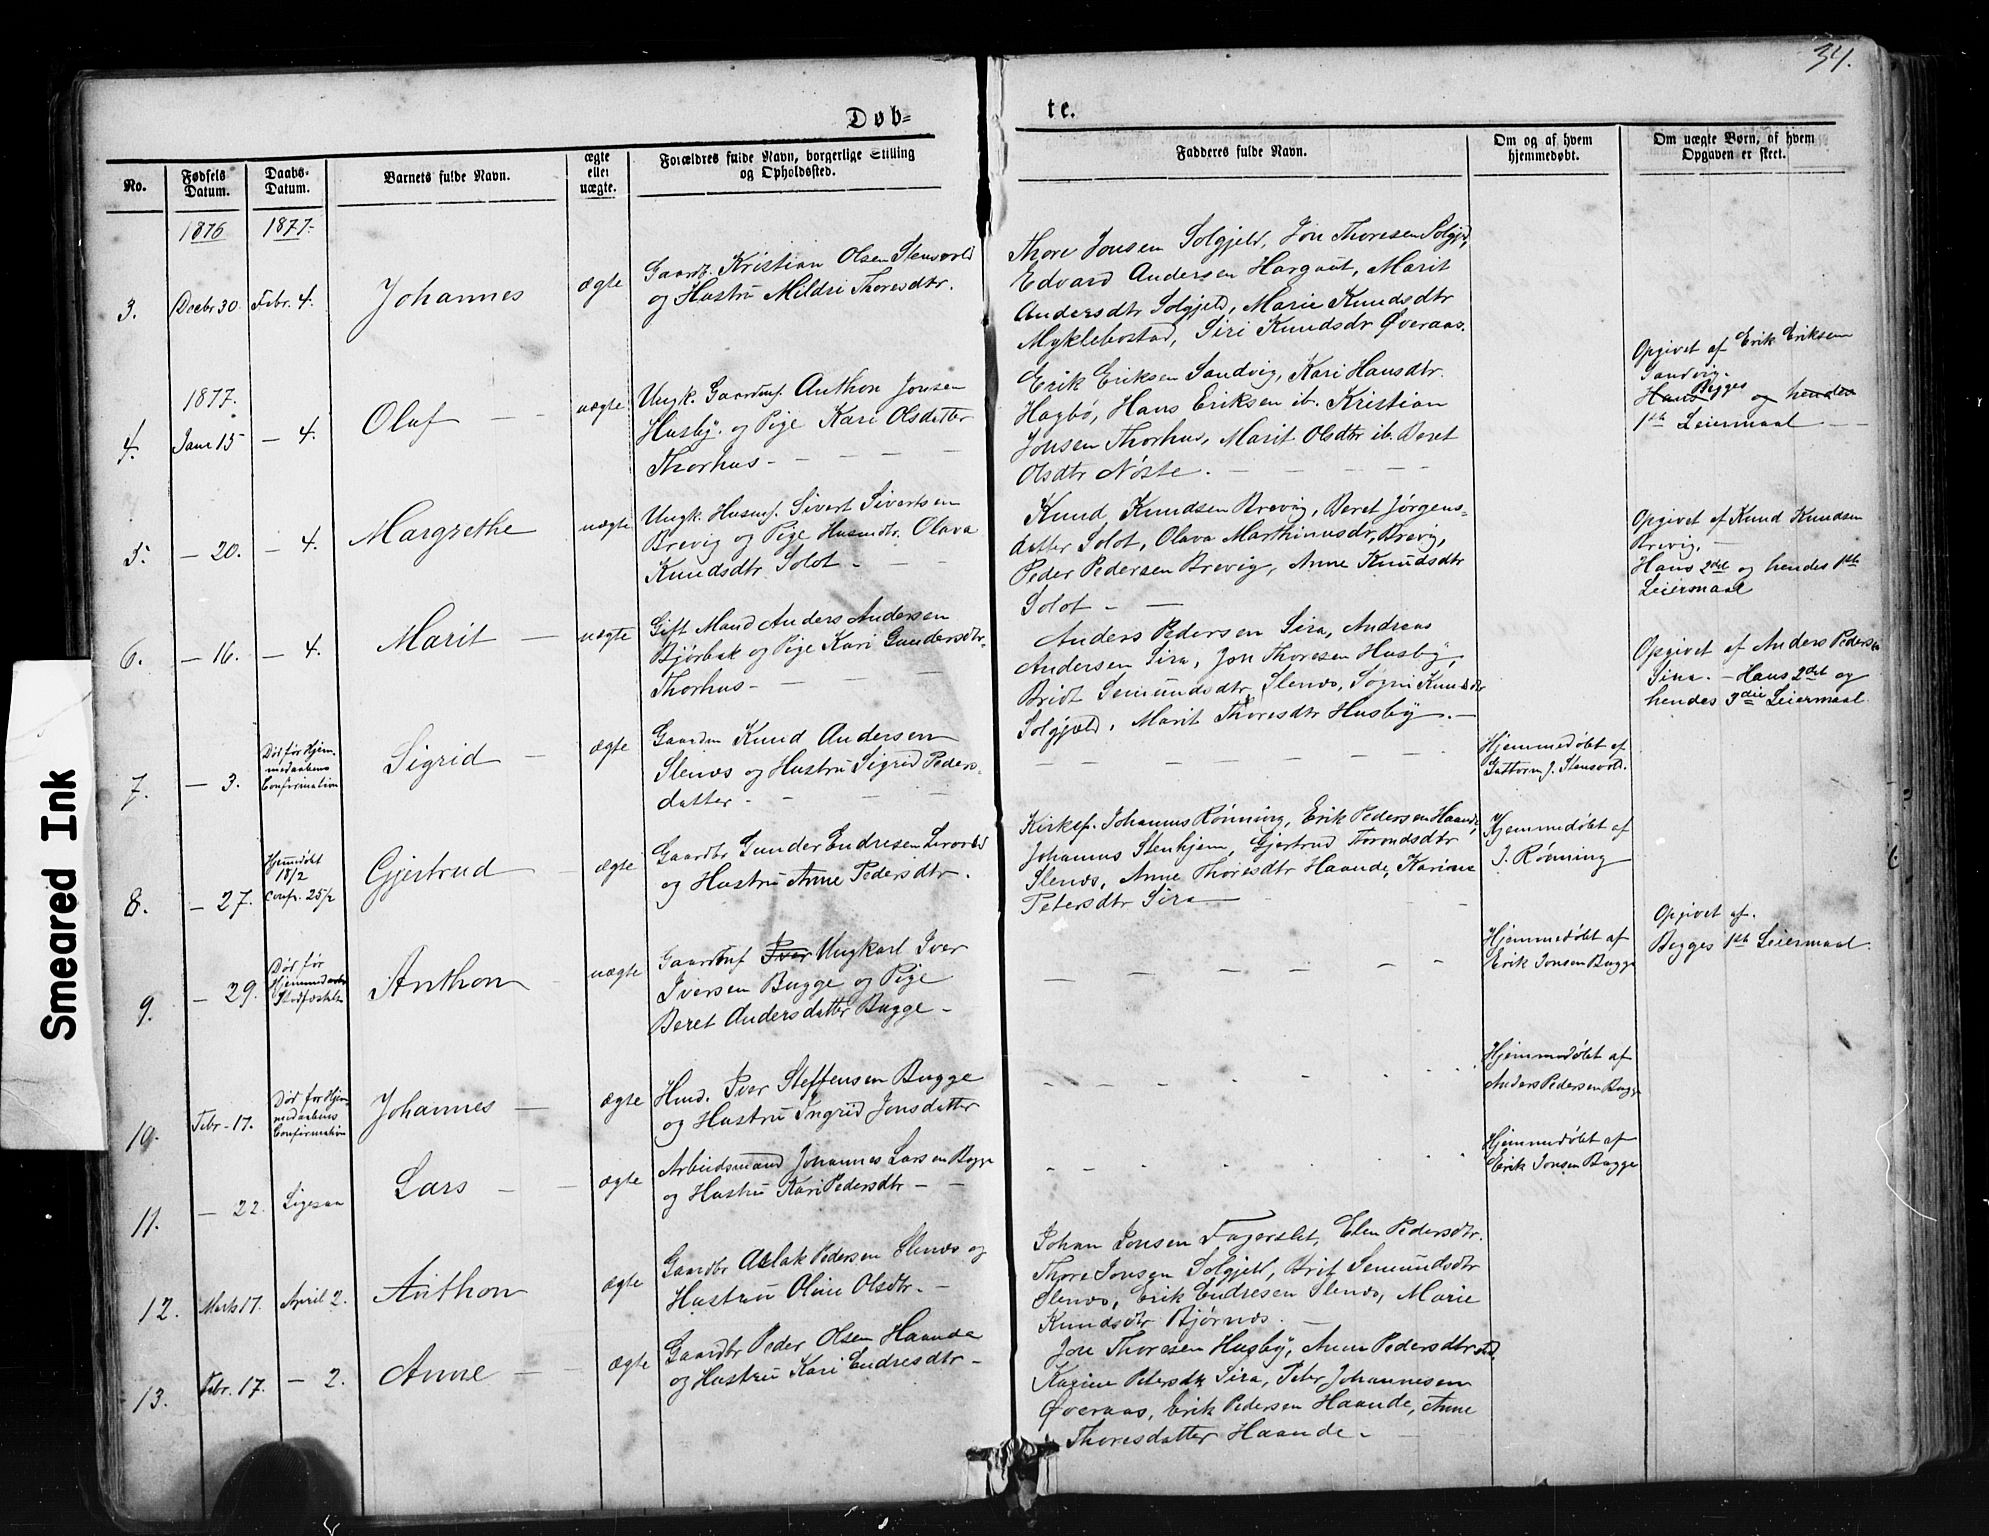 34.
Døb=
te.
No.
Fødsels
Datum.
Daabs-
Datum.
Barnets fulde Navn.
ægte
eller
uægte.
Forældres fulde Navn, borgerlige Stilling
og Opholdssted.
Fadderes fulde Navn.
Om og af hvem
hjemmedøbt.
Om uægte Børn, af hvem
Opgaven er skeet.
1876
1877.
3.
Decbr 30.
Febr. 4.
Johannes
ægte
Gaardb. Kristian Olsen Stensvold
og Hustru Mildri Thoresdtr.
Thore Jonsen Solgjeld, Jon Thoresen Solgjd,
Edvard Andersen Hargaut, Marit
Andersdtr Solgjeld, Marie Knudsdtr
Myklebostad, Siri Knudsdr Øveraas.
1877.
4.
Janr 15
— 4.
Olaf —
uægte
Ungk. Gaardmf. Anthon Jonsen
Husby. og Pige Kari Olsdatter
Thorhus —
Erik Eriksen Sandvig, Kari Hansdtr.
Hagbø, Hans Eriksen ib. Kristian
Jonsen Thorhus, Marit Olsdtr ib. Beret
Olsdtr Nöste.
Opgivet af Erik Eriksen
Sandvig.
Hans Begges og hendes
1ste Leiermaal
5.
— 20.
— 4.
Margrethe
uægte
Ungk. Husmf. Sivert Sivertsen
Brevig og Pige Husmdtr. Olava
Knudsdtr Solot —
Knud Knudsen Brevig, Beret Jørgens-
datter Solot, Olava Marthinusdr, Brevig,
Peder Pedersen Brevig, Anne Knudsdtr
Solot —
Opgivet af Knud Knudsen
Brevig, —
Hans 2det og hendes 1ste
Leiermaal
6.
— 16.
— 4.
Marit —
uægte
Gift Mand Anders Andersen
Bjørbak og Pige Kari Gundersdtr.
Thorhus —
Anders Pedersen Sira, Andreas
Andersen Sira, Jon Thoresen Husby,
Bridt Semundsdtr Slenæs, Sogni Knudsdtr
Solgjæld, Marit Thoresdtr Husby. —
Opgivet af Anders Pedersen
Sira. — Hans 2det og
hendes 3die Leiermaal
7.
— 3.
Død før Hjem-
medaabens
Confirmation
Sigrid —
ægte
Gaardm Knud Andersen
Slenæs og Hustru Sigrid Peders-
datter —
Hjemmedøbt af
Guttorm J. Stensvold.
8.
— 27.
Hjemdøbt
18/2
Conf. 25/2
Gjertrud —
ægte
Gaardbr Gunder Endresen
og Hustru Anne Pedersdtr.
Kirkesf. Johannes Rønning, Erik Pedersen Haande,
Johannes Stenhjem, Gjertrud Trondsdtr
Slenæs, Anne Thoresdtr Haande, Karine
Petersdtr Sira —
Hjemmedøbt af
J. Rønning
9.
— 29.
Død før
Hjemmedaabs
Anthon
uægte
Gaardmf Iver Ungkarl Iver
Iversen Bugge og Pige
Beret Andersdatter Bugge —
Hjemmedøbt af
Erik Jonsen Bugge
Opgivet af.
Begges 1ste Leiermaal.
10.
Febr. 17.
Død før Hjem-
medaabens
Confirmation
Johannes —
ægte
Husd. Iver Steffensen Bugge
og Hustru Ingrid Jonsdatter
Hjemmedøbt af
Anders Pedersen Bugge
11.
— 22.
Ligesaa
Lars —
ægte
Arbeidsmand Johannes Larsen Bugge
og Hustru Kari Pedersdtr —
Hjemmedøbt af
Erik Jonsen Bugge
12.
Marts 17.
April 2.
Anthon
ægte
Gaardbr Aslak Pedersen Slenæs og
Hustru Oline Olsdtr. —
Johan Jonsen Fagerslet, Elen Pedersdtr.
Thore Jonsen Solgjeld, Brit Semundsdtr
Slenæs, Erik Endresen Slenæs, Marie
Knudsdtr Bjørnæs. —
13.
Febr. 17.
— 2.
Anne —
ægte
Gaardbr Peder Olsen Haande
og Hustru Kari Endresdtr —
Jon Thoresen Husby, Anne Pedersdtr std.
Karine Petersdtr Sira, Peter Johannesen
Øveraas, Erik Pedersen Haande, Anne
Thoresdatter Haande. —
Smeared Ink